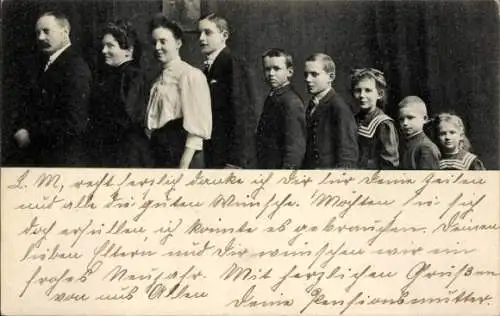 L. M, recht herzlich danke ich Dir für Deine Zeilen
und alle die guten Wünsche. Möchten sie sich
doch erfüllen, ich könnte es gebrauchen. Deinen
lieben Eltern und Dir wünschen wir ein
frohes Neujahr. Mit herzlichen Grüßen
von uns Allen
Deine Pensionsmutter.